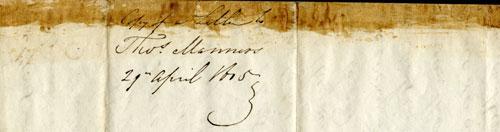 Copy of a Letter to
Thos. Manners
29 April 1815